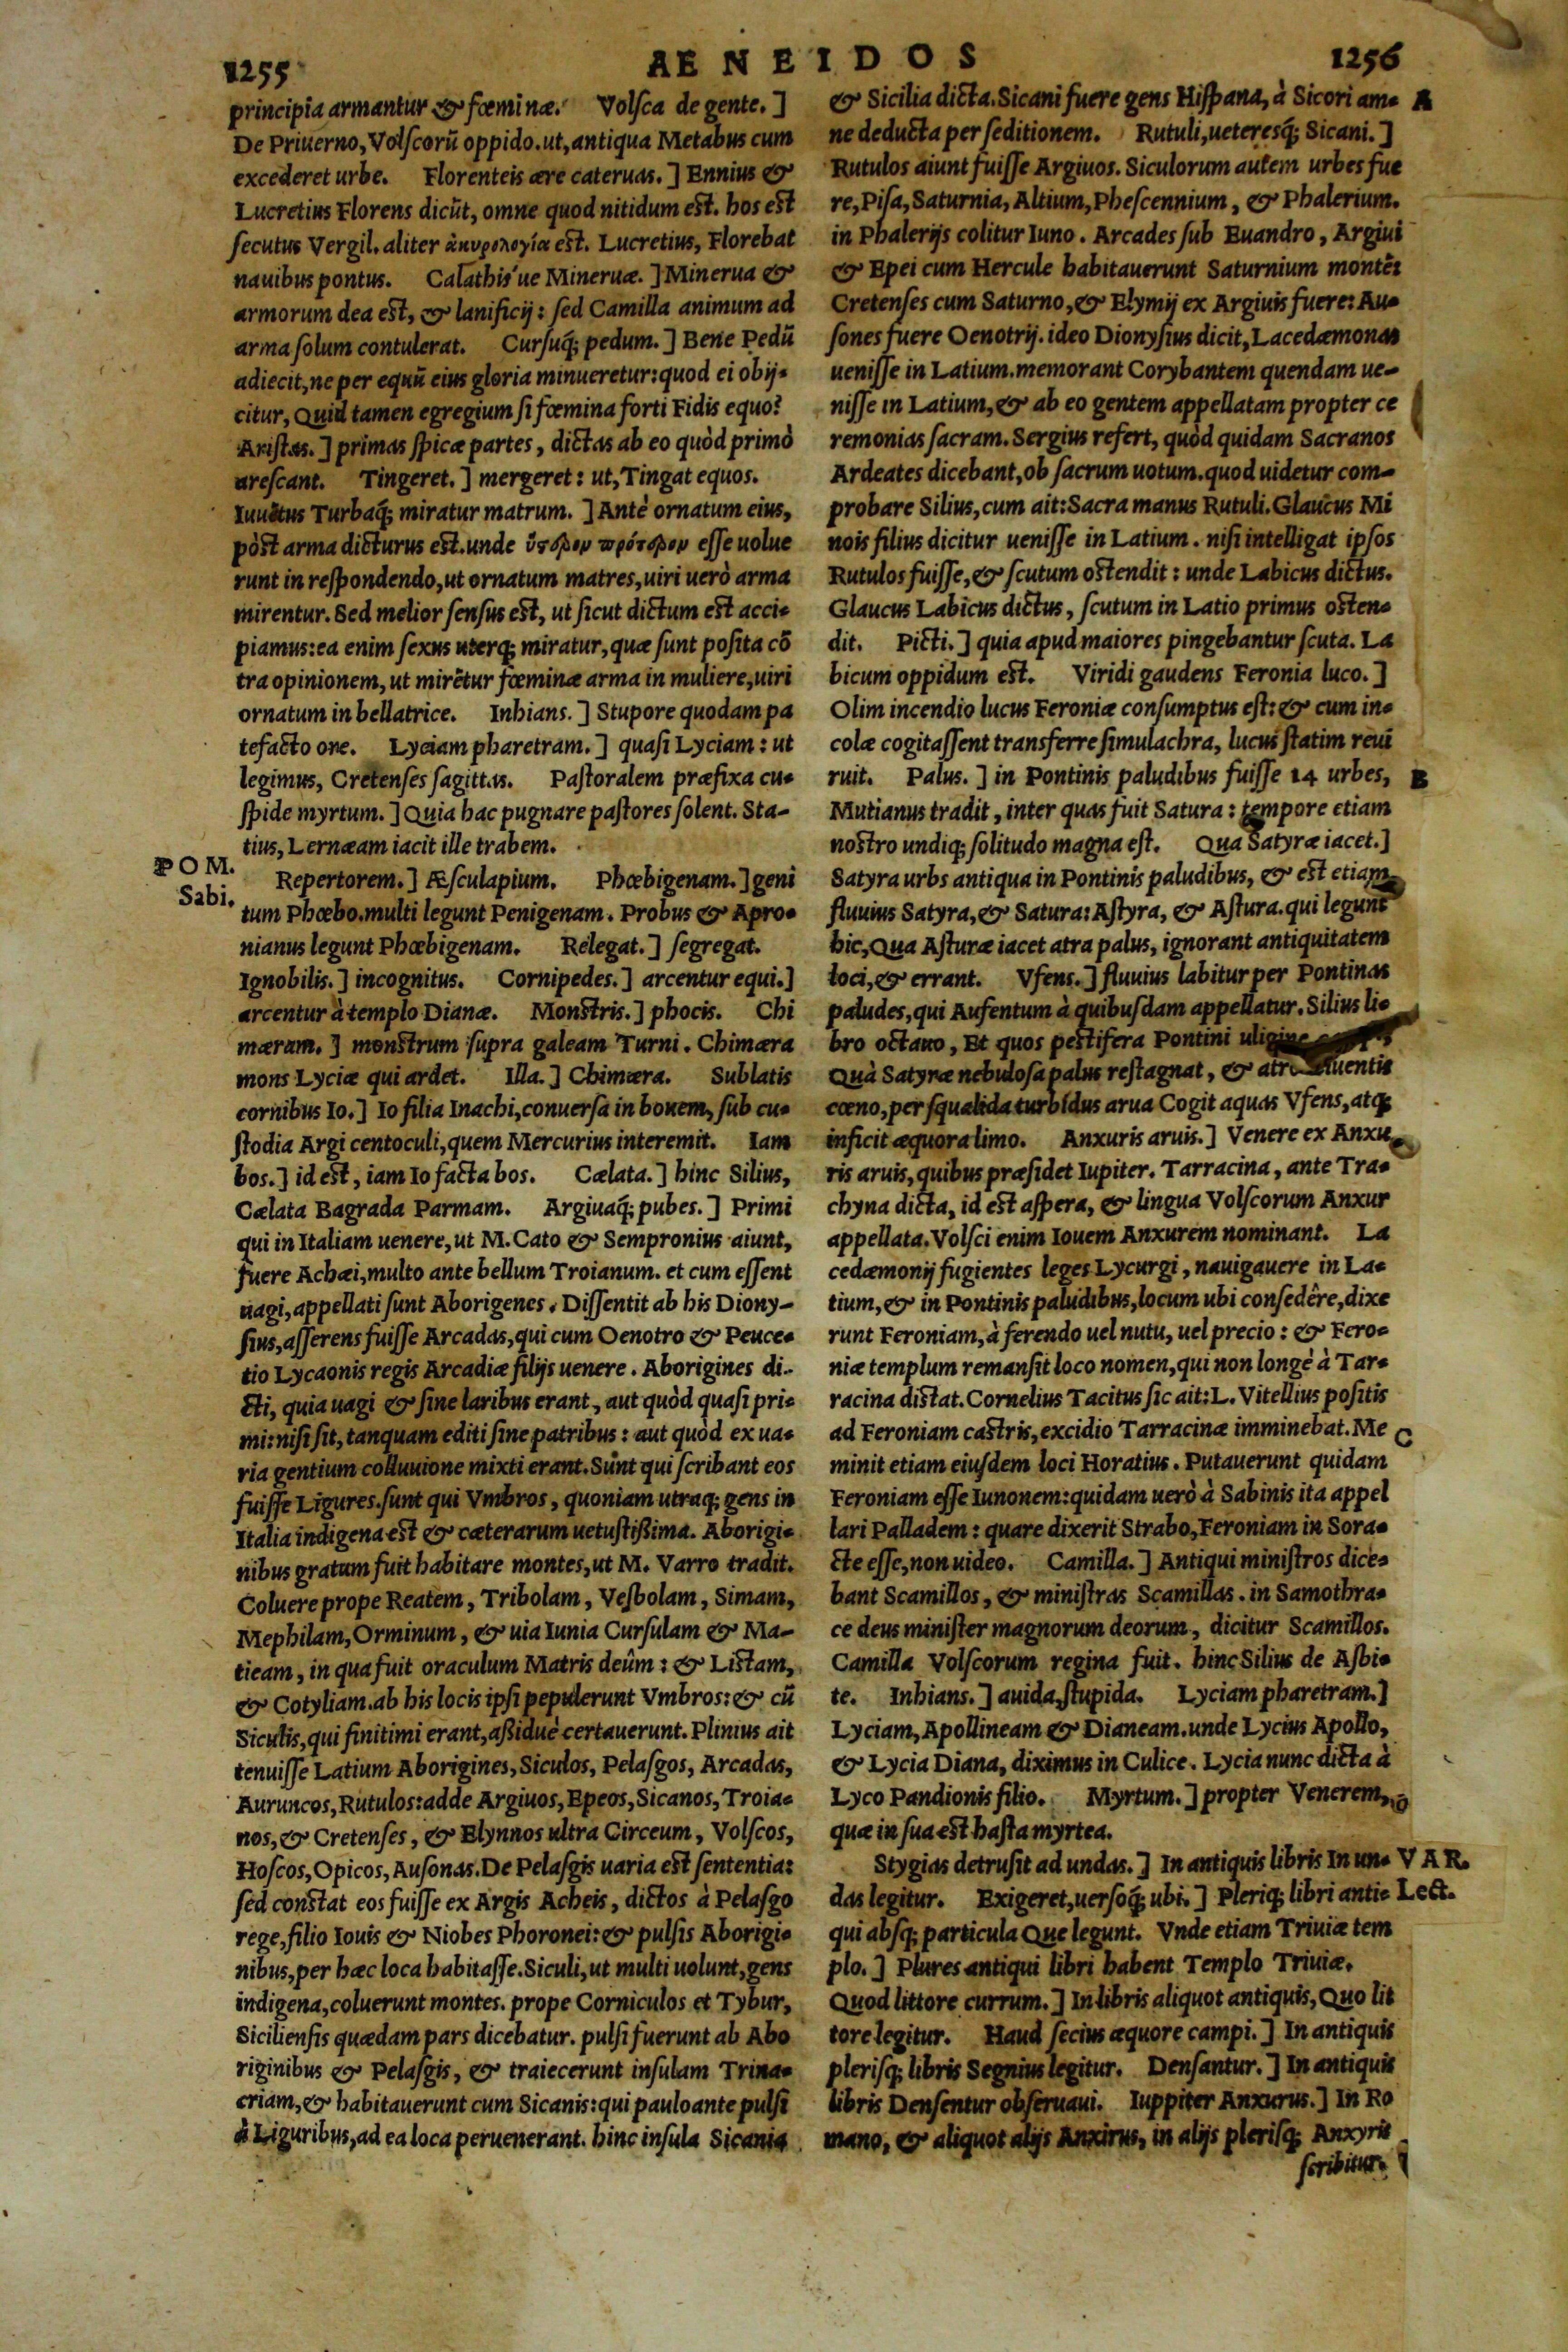 1255
AENEIDOS
1256
principia armantur & fœminæ. Volsca de gente.]
De Priuerno, Volscorū oppido. ut, antiqua Metabus cum
excederet urbe. Florenteis ære cateruas.] Ennius &
Lucretius Florens dicūt, omne quod nitidum est. hos est
secutus Vergil. aliter ἀκυρολογία est. Lucretius, Florebat
nauibus pontus. Calathis'ue Mineruæ.] Minerua &
armorum dea est, & lanificij: sed Camilla animum ad
arma solum contulerat. Cursuq́; pedum.] Bene Pedū
adiecit, ne per equū eius gloria minueretur: quod ei obij-
citur, Quid tamen egregium si fœmina forti Fidis equo?
Aristas.] primas spicæ partes, dictas ab eo quòd primò
arescant. Tingeret.] mergeret: ut, Tingat equos.
Iuuētus Turbaq́; miratur matrum.] Antè ornatum eius,
pòst arma dicturus est. unde ὕστερον πρότερον esse uolue
runt in respondendo, ut ornatum matres, uiri uerò arma
mirentur. Sed melior sensus est, ut sicut dictum est acci-
piamus: ea enim sexus uterq; miratur, quæ sunt posita cō
tra opinionem, ut mirētur fœminæ arma in muliere, uiri
ornatum in bellatrice. Inhians.] Stupore quodam pa
tefacto ore. Lyciam pharetram.] quasi Lyciam: ut
legimus, Cretenses sagittas. Pastoralem præfixa cu-
spide myrtum.] Quia hac pugnare pastores solent. Sta-
tius, Lernæam iacit ille trabem.
POM.
Sabi.
Repertorem.] Æsculapium. Phœbigenam.] geni
tum Phœbo. multi legunt Penigenam. Probus & Apro-
nianus legunt Phœbigenam. Relegat.] segregat.
Ignobilis.] incognitus. Cornipedes.] arcentur equi.]
arcentur à templo Dianæ. Monstris.] phocis. Chi
mæram.] monstrum supra galeam Turni. Chimæra
mons Lyciæ qui ardet. Illa.] Chimæra. Sublatis
cornibus Io.] Io filia Inachi, conuersa in bouem, sub cu-
stodia Argi centoculi, quem Mercurius interemit. Iam
bos.] id est, iam Io facta bos. Cælata.] hinc Silius,
Cælata Bagrada Parmam. Argiuaq́; pubes.] Primi
qui in Italiam uenere, ut M. Cato & Sempronius aiunt,
fuere Achæi, multo ante bellum Troianum. et cum essent
uagi, appellati sunt Aborigenes. Dissentit ab his Diony-
sius, asserens fuisse Arcadas, qui cum Oenotro & Peuce-
tio Lycaonis regis Arcadiæ filijs uenere. Aborigines di-
cti, quia uagi & sine laribus erant, aut quòd quasi pri-
mi: nisi sit, tanquam editi sine patribus: aut quòd ex ua-
ria gentium colluuione mixti erant. Sunt qui scribant eos
fuisse Ligures. sunt qui Vmbros, quoniam utraq; gens in
Italia indigena est & cæterarum uetustißima. Aborigi-
nibus gratum fuit habitare montes, ut M. Varro tradit.
Coluere prope Reatem, Tribolam, Vesbolam, Simam,
Mephilam, Orminum, & uia Iunia Cursulam & Ma-
tieam, in qua fuit oraculum Matris deûm: & Listam,
& Cotyliam. ab his locis ipsi pepulerunt Vmbros: & cū
Siculis, qui finitimi erant, aßiduè certauerunt. Plinius ait
tenuisse Latium Aborigines, Siculos, Pelasgos, Arcadas,
Auruncos, Rutulos: adde Argiuos, Epeos, Sicanos, Troia-
nos, & Cretenses, & Elynnos ultra Circeum, Volscos,
Hoscos, Opicos, Ausonas. De Pelasgis uaria est sententia:
sed constat eos fuisse ex Argis Acheis, dictos à Pelasgo
rege, filio Iouis & Niobes Phoronei: & pulsis Aborigi-
nibus, per hæc loca habitasse. Siculi, ut multi uolunt, gens
indigena, coluerunt montes. prope Corniculos et Tybur,
Siciliensis quædam pars dicebatur. pulsi fuerunt ab Abo
riginibus & Pelasgis, & traiecerunt insulam Trina-
criam, & habitauerunt cum Sicanis: qui pauloante pulsi
à Liguribus, ad ea loca peruenerant. hinc insula Sicania
& Sicilia dicta. Sicani fuere gens Hispana, à Sicori am-
A
ne deducta per seditionem. Rutuli, ueteresq́; Sicani.]
Rutulos aiunt fuisse Argiuos. Siculorum autem urbes fue
re, Pisa, Saturnia, Altium, Phescennium, & Phalerium.
in Phalerijs colitur Iuno. Arcades sub Euandro, Argiui
& Epei cum Hercule habitauerunt Saturnium montē:
Cretenses cum Saturno, & Elymij ex Argiuis fuere: Au-
sones fuere Oenotrij. ideo Dionysius dicit, Lacedæmonas
uenisse in Latium. memorant Corybantem quendam ue-
nisse in Latium, & ab eo gentem appellatam propter ce
remonias sacram. Sergius refert, quòd quidam Sacranos
Ardeates dicebant, ob sacrum uotum. quod uidetur com-
probare Silius, cum ait: Sacra manus Rutuli. Glaucus Mi
nois filius dicitur uenisse in Latium. nisi intelligat ipsos
Rutulos fuisse, & scutum ostendit: unde Labicus dictus.
Glaucus Labicus dictus, scutum in Latio primus osten-
dit. Picti.] quia apud maiores pingebantur scuta. La
bicum oppidum est. Viridi gaudens Feronia luco.]
Olim incendio lucus Feroniæ consumptus est: & cum in-
colæ cogitassent transferre simulachra, lucus statim reui
ruit. Palus.] in Pontinis paludibus fuisse 14 urbes,
B
Mutianus tradit, inter quas fuit Satura: tempore etiam
nostro undiq; solitudo magna est. Qua Satyræ iacet.]
Satyra urbs antiqua in Pontinis paludibus, & est etiam
fluuius Satyra, & Satura: Astyra, & Astura. qui legunt
hic, Qua Asturæ iacet atra palus, ignorant antiquitatem
loci, & errant. Vfens.] fluuius labitur per Pontinas
paludes, qui Aufentum à quibusdam appellatur. Silius li-
bro octauo, Et quos pestifera Pontini uligine
Quà Satyræ nebulosa palus restagnat, &
cœno, per squalida turbidus arua Cogit aquas Vfens, atq;
inficit æquora limo. Anxuris aruis.] Venere ex Anxu
ris aruis, quibus præsidet Iupiter. Tarracina, ante Tra-
chyna dicta, id est aspera, & lingua Volscorum Anxur
appellata. Volsci enim Iouem Anxurem nominant. La
cedæmonij fugientes leges Lycurgi, nauigauere in La-
tium, & in Pontinis paludibus, locum ubi consedêre, dixe
runt Feroniam, à ferendo uel nutu, uel precio: & Fero-
niæ templum remansit loco nomen, qui non longè à Tar-
racina distat. Cornelius Tacitus sic ait: L. Vitellius positis
ad Feroniam castris, excidio Tarracinæ imminebat. Me
C
minit etiam eiusdem loci Horatius. Putauerunt quidam
Feroniam esse Iunonem: quidam uerò à Sabinis ita appel
lari Palladem: quare dixerit Strabo, Feroniam in Sora-
cte esse, non uideo. Camilla.] Antiqui ministros dice-
bant Scamillos, & ministras Scamillas. in Samothra-
ce deus minister magnorum deorum, dicitur Scamillos.
Camilla Volscorum regina fuit. hinc Silius de Asbi-
te. Inhians.] auida, stupida. Lyciam pharetram.]
Lyciam, Apollineam & Dianeam. unde Lycius Apollo,
& Lycia Diana, diximus in Culice. Lycia nunc dicta à
Lyco Pandionis filio. Myrtum.] propter Venerem,
quæ in sua est hasta myrtea.
Stygias detrusit ad undas.] In antiquis libris In un-
VAR.
das legitur. Exigeret, uersoq́; ubi.] Pleriq; libri anti-
Lect.
qui absq; particula Que legunt. Vnde etiam Triuiæ tem
plo.] Plures antiqui libri habent Templo Triuiæ.
Quod littore currum.] In libris aliquot antiquis, Quo lit
tore legitur. Haud secius æquore campi.] In antiquis
plerisq; libris Segnius legitur. Densantur.] In antiquis
libris Densentur obseruaui. Iuppiter Anxurus.] In Ro
mano, & aliquot alijs Anxirus, in alijs plerisq; Anxyris
scribitur.